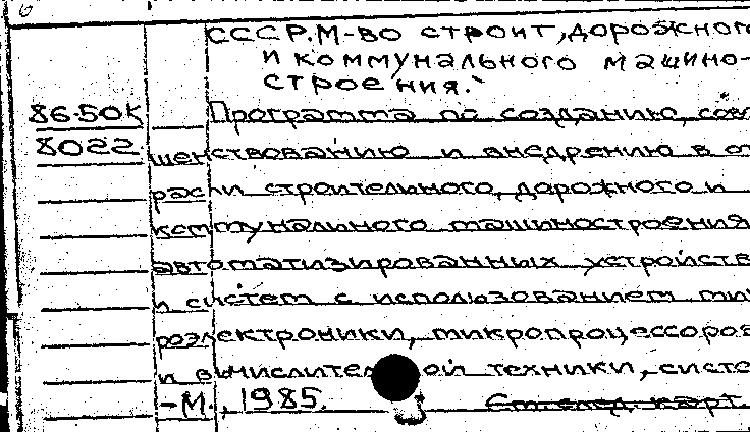 СССР. М-во строит., дорожног
и коммунального машино-
строения.
86-50К Программа по созданию, сов
8022 шенствованию и внедрению в от
расли строительного, дорожного и
коммунального машиностроения
автоматизированных устройств
и систем с использованием ми
роэлектроники, микропроцессоров
и вычислител ой техники, систе
-М., 1985. См. след. карт.